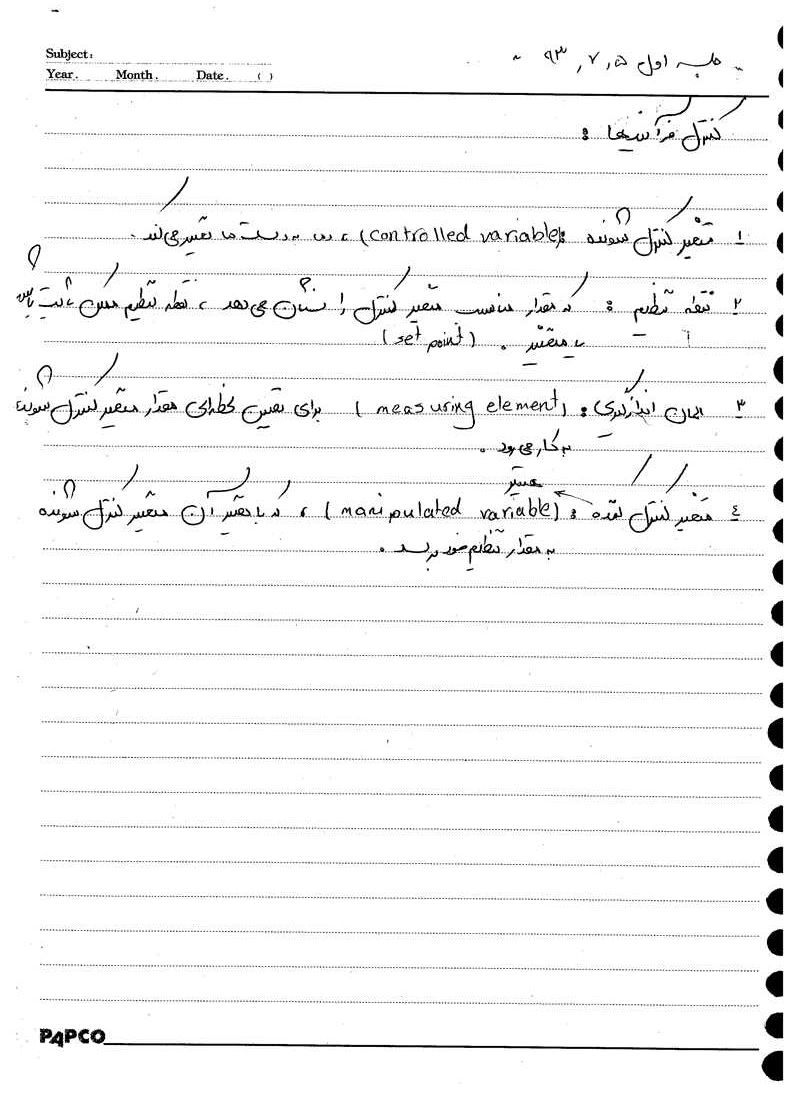 Subject:
Year. Month. Date. ( )
جلسه اول ۹۳,۷,۵
کنترل فرآیندها :
۱ متغیر کنترل شونده : (controlled variable) ، به دست ما تغییر می‌کند .
۲ نقطه تنظیم : که مقدار مناسب متغیر کنترل را نشان می‌دهد ، نقطه تنظیم ممکن ثابت باشد
یا متغیر . (set point)
۳ المان اندازه‌گیری : (measuring element) برای تعیین لحظه‌ای مقدار متغیر کنترل شونده
به کار می‌رود .
متغیر
٤ متغیر کنترل کننده : (manipulated variable) ، که با تغییر آن متغیر کنترل شونده
به مقدار تنظیم خود برسد .
PAPCO